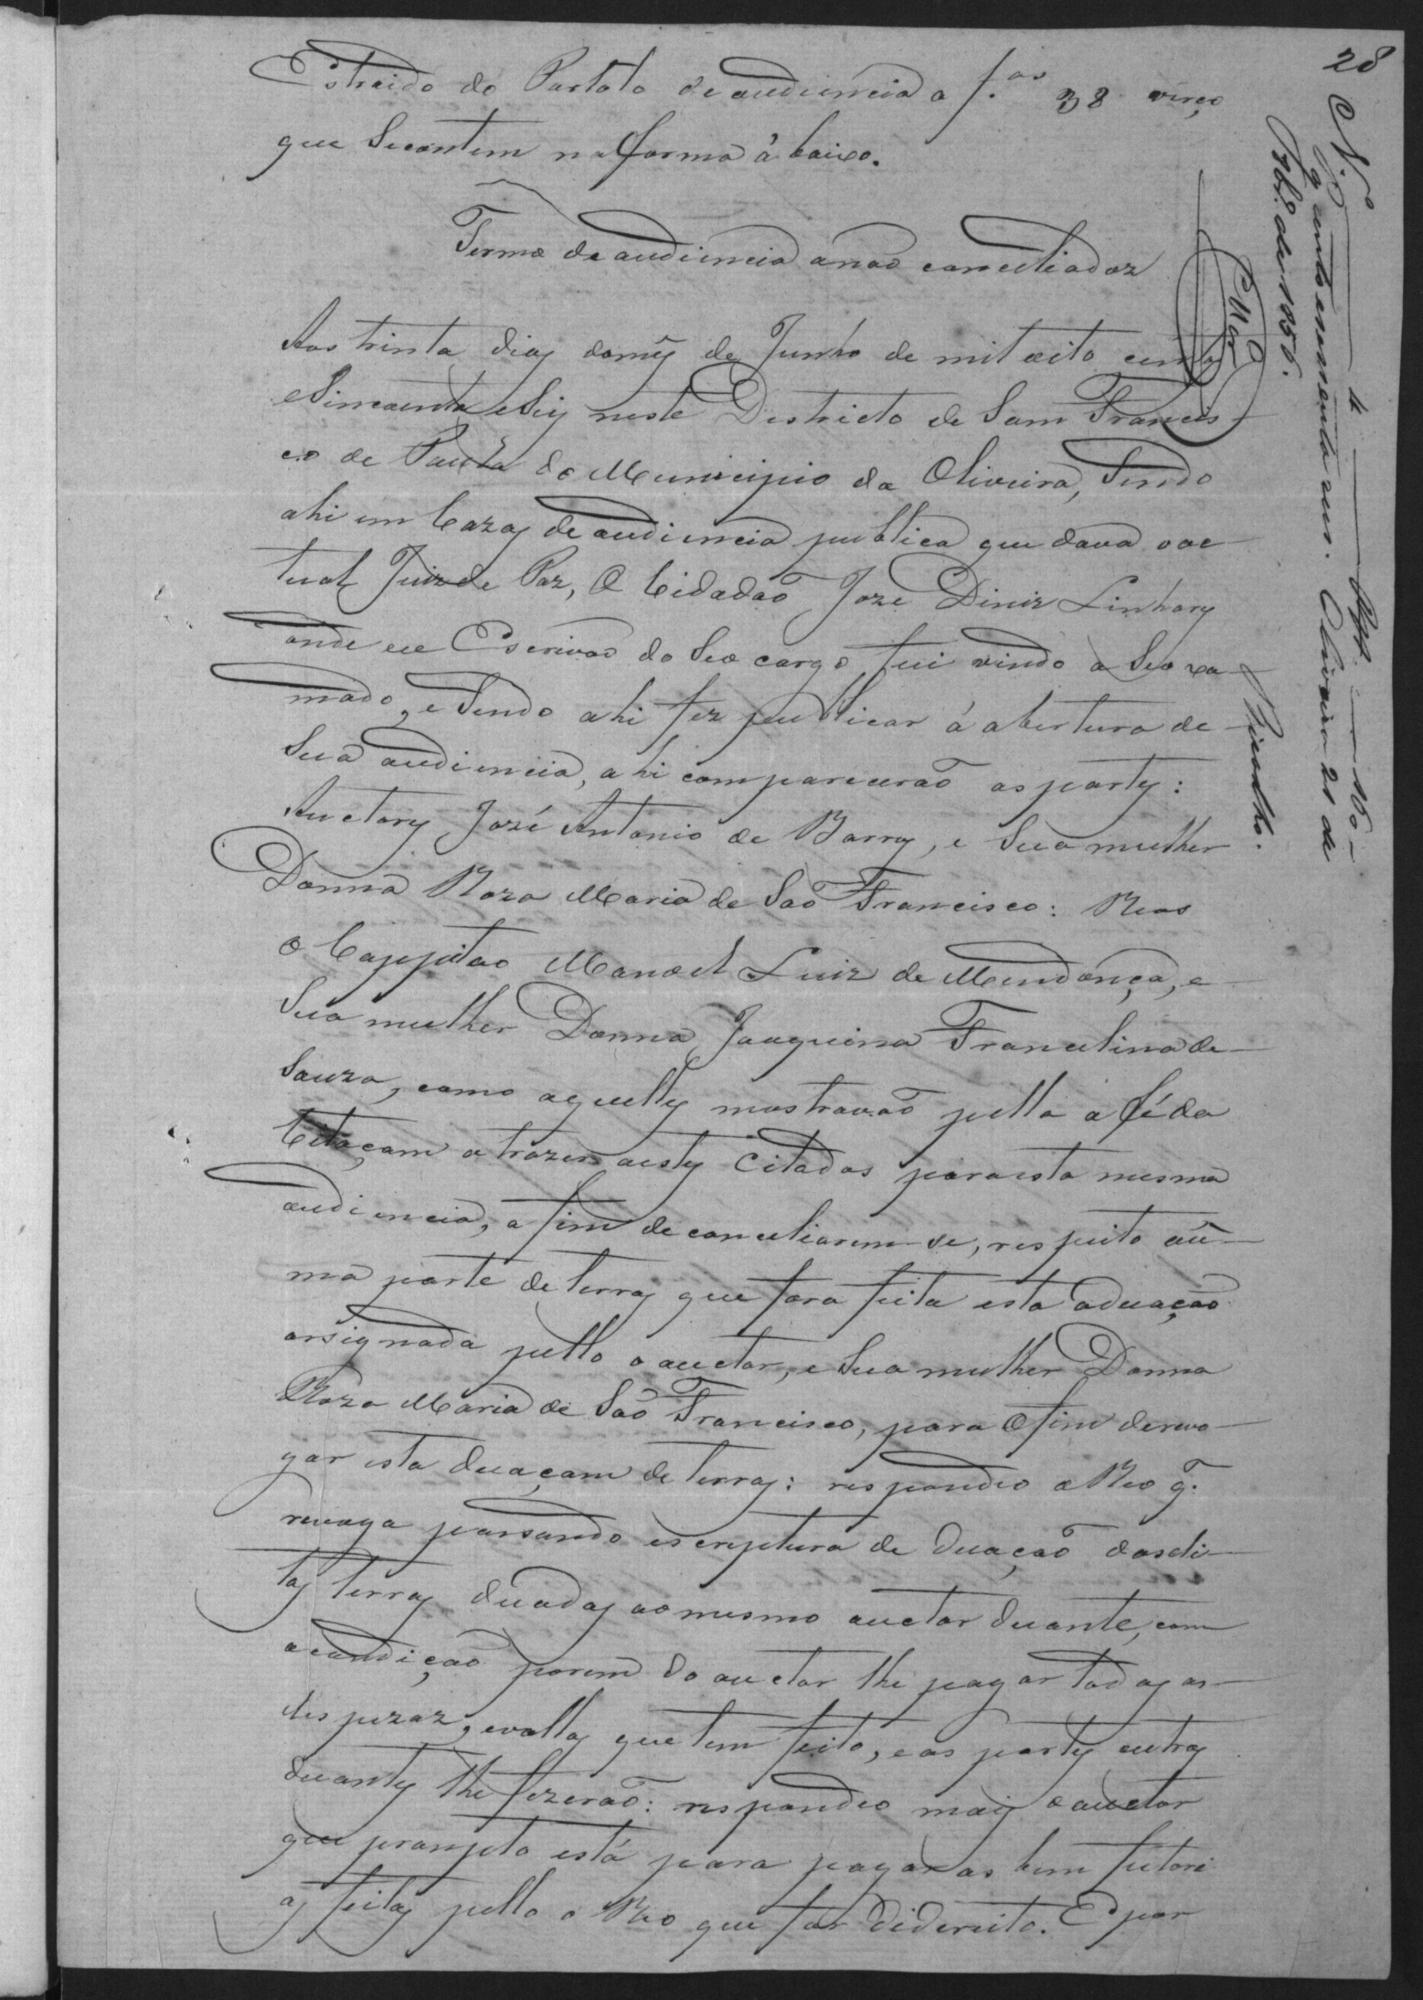 28
Estraido do Portoto de audiencia a f.as 38 verço
que Secontem na forma á baixo.
Termo de audiencia a não conceliadoz
Aos trinta dias do mês de Junho de mil oito centos
eSincoenta eSeis neste Destricto de Sam Francis-
co de Paula do Municipio da Oliveira, Sendo
ahi em Cazas de audiencia publica que dava o ac-
tual Juiz de Paz, O Cidadão Joze Diniz Linhares
onde eu Escrivão do Seo cargo fui vindo a Seo xa-
mado, e Sendo ahi fez publicar á abertura de
Sua audiencia, ahi comparecerão as partes:
Auctores José Antonio de Barros, e Sua mulher
Donna Roza Maria de São Francisco: Reos
o Cappitão Manoel Luiz de Mendonça, e
Sua mulher Donna Joaquina Francelina de
Souza, como aquelles mostravão pello a fé da
Citaçam a trazer aestes Citados para esta mesma
audiencia, a fim de conceliarem-se, respeito aũ-
ma parte de terras que fora feita esta aduação
assignada pello o auctor, e Sua mulher Donna
Roza Maria de São Francisco, para o fim derevo-
gar esta duaçam de terras: respondeo o Reo q.
revoga passando escriptura de duação das di-
tas terras duadas ao mesmo auctor duante, com
acondição porem do auctor lhe pagar todas as
despezaz, evallas que tem feito, e as partes outras
duantes lhe fizerão: respondeo mais o auctor
que prompto está para pagar as bem feitori
as feitas pello o Reo que for didereito. E por
N.º 4 160
g cento esessenta reis. Oliveira 21 de
7br.º de 1856.